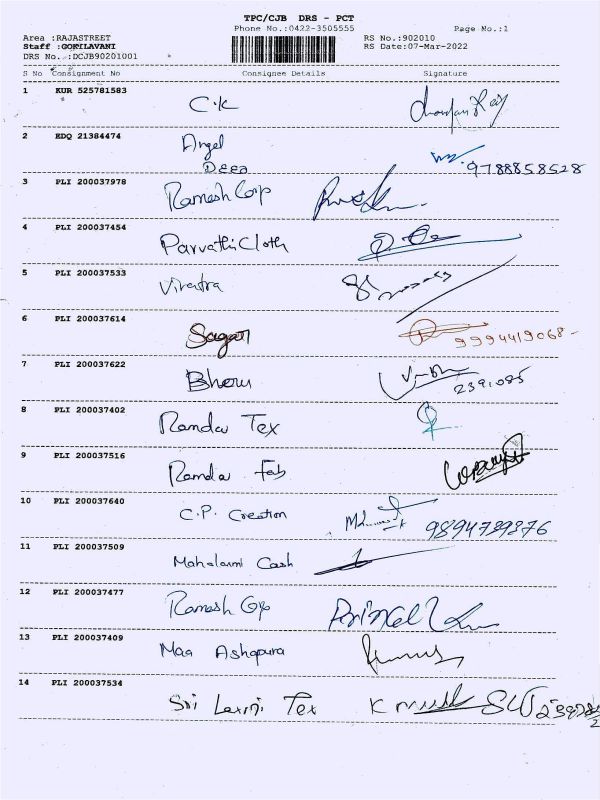 TPC/CJB DRS - PCT
Phone No.:0422-3505555 Page No.:1
Area :RAJASTREET RS No.:902010
Staff :GOKILAVANI RS Date:07-Mar-2022
DRS No.:DCJB90201001
S No Consignment No Consignee Details Signature
1 KUR 525781583 C.K
2 EDQ 21384474 Angel
Deep 9788858528
3 PLI 200037978 Ramesh Corp
4 PLI 200037454 Parvathi Cloth
5 PLI 200037533
6 PLI 200037614 Sagar 9994419068
7 PLI 200037622 Bheru 2391085
8 PLI 200037402 Randa Tex
9 PLI 200037516 Randa Fab
10 PLI 200037640 C.P. Creation 9894739376
11 PLI 200037509 Mahalaxmi Cash
12 PLI 200037477 Ramesh
13 PLI 200037409 Maa Ashapura
14 PLI 200037534 Sri Laxmi Tex